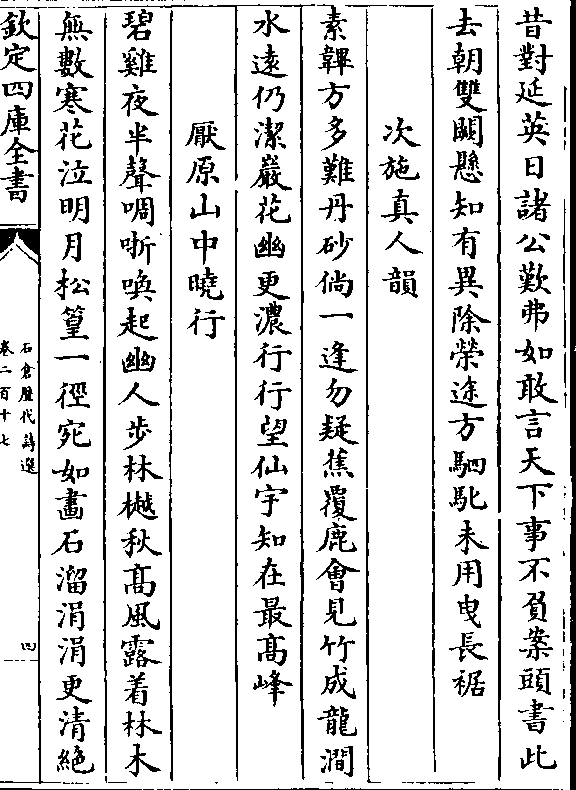 昔對延英日諸公歎弗如敢言天下事不負案頭書此
去朝雙闕懸知有異除榮途方駟馳未用曳長裾
次施真人韻
素韠方多難丹砂倘一逢勿疑蕉覆鹿會見竹成龍澗
水遠仍潔巖花幽更濃行行望仙宇知在最高峰
厭原山中曉行
碧雞夜半聲啁哳喚起幽人步林樾秋高風露着林木
無數寒花泣明月松篁一徑宛如畫石溜涓涓更清絶
欽定四庫全書
石倉歷代詩選
卷二百十七
四